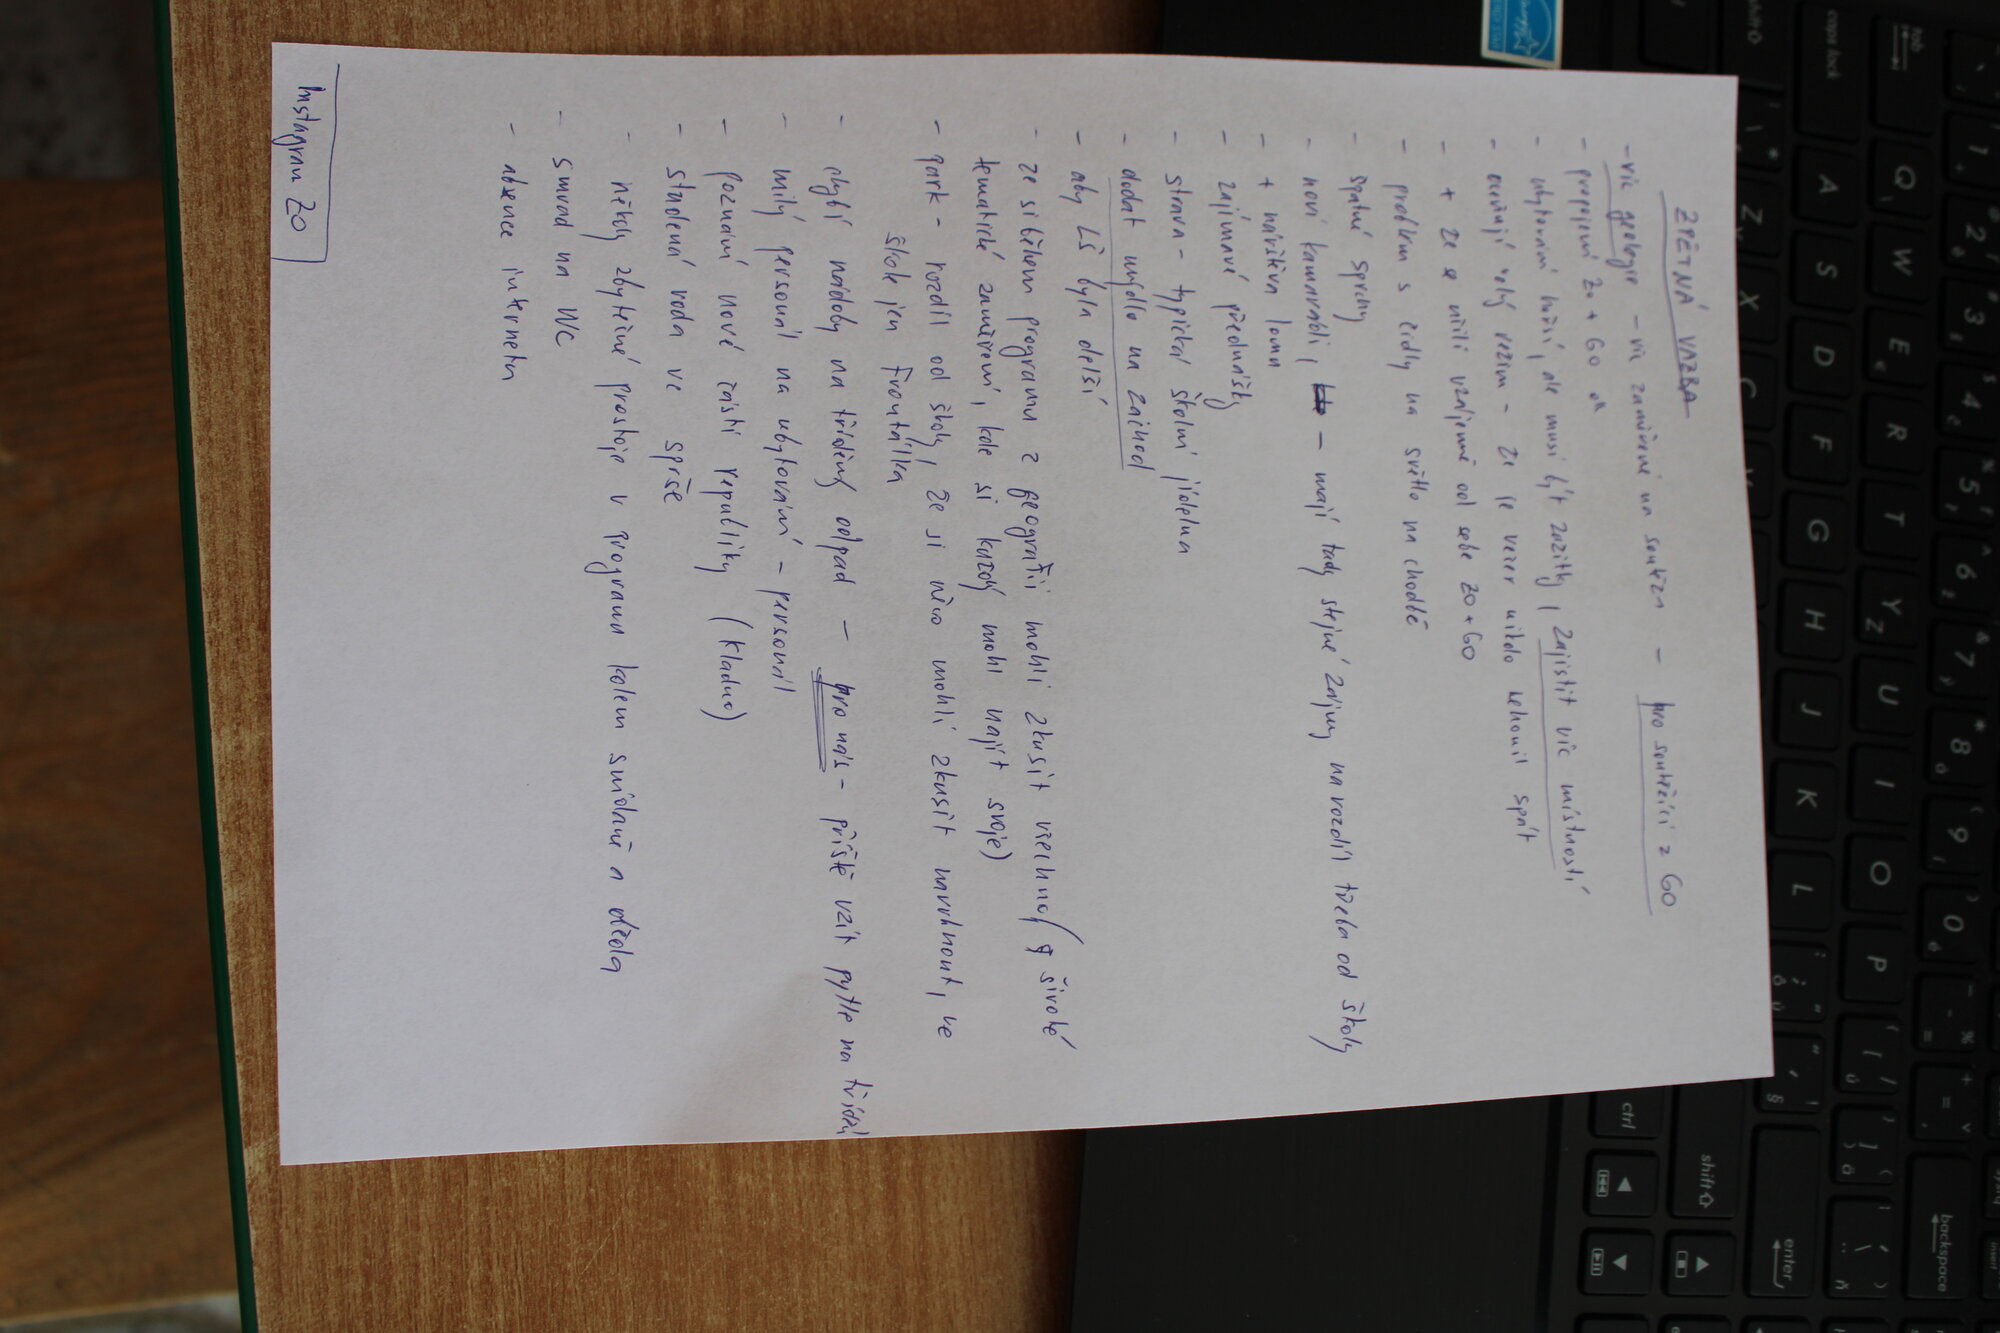 ZPĚTNÁ VAZBA
- víc geologie - víc zaměřené na soutěžn - pro soutěžící z GO
- propojení ZO + GO ok
- ubytování horší, ale musí být zážitky, zajistit víc místností
- oceňují volný režim - že je večer nikdo nehonil spát
- + že se učili vzájemně od sebe ZO + GO
- problém s čidly na světlo na chodbě
- špatné sprchy
- noví kamarádi, - mají tady stejné zájmy na rozdíl třeba od školy
- + návštěva lomu
- zajímavé přednášky
- strava - typická školní jídelna
- dodat mýdlo na záchod
- aby LŠ byla delší
- že si během programu z geografii mohli zkusit všechno (široké
tematické zaměření, kde si každý mohl najít svoje)
- park - rozdíl od školy, že si něco mohli zkusit navrhnout, ve
škole jen frontálka
- chybí nádoby na tříděný odpad - pro nás - příště vzít pytle na tříděný
- milý personál na ubytování - personál
- poznání nové části republiky (Kladno)
- studená voda ve sprše
- někdy zbytečné prostoje v programu kolem snídaně a oběda
- smrad na WC
- absence internetu
Instagram ZO
tab
caps lock
shift
Q
W
E
R
T
Y
Z
U
I
O
P
A
S
D
F
G
H
J
K
L
Z
X
C
1
2
3
4
5
6
7
8
9
0
backspace
enter
shift
ctrl
insert